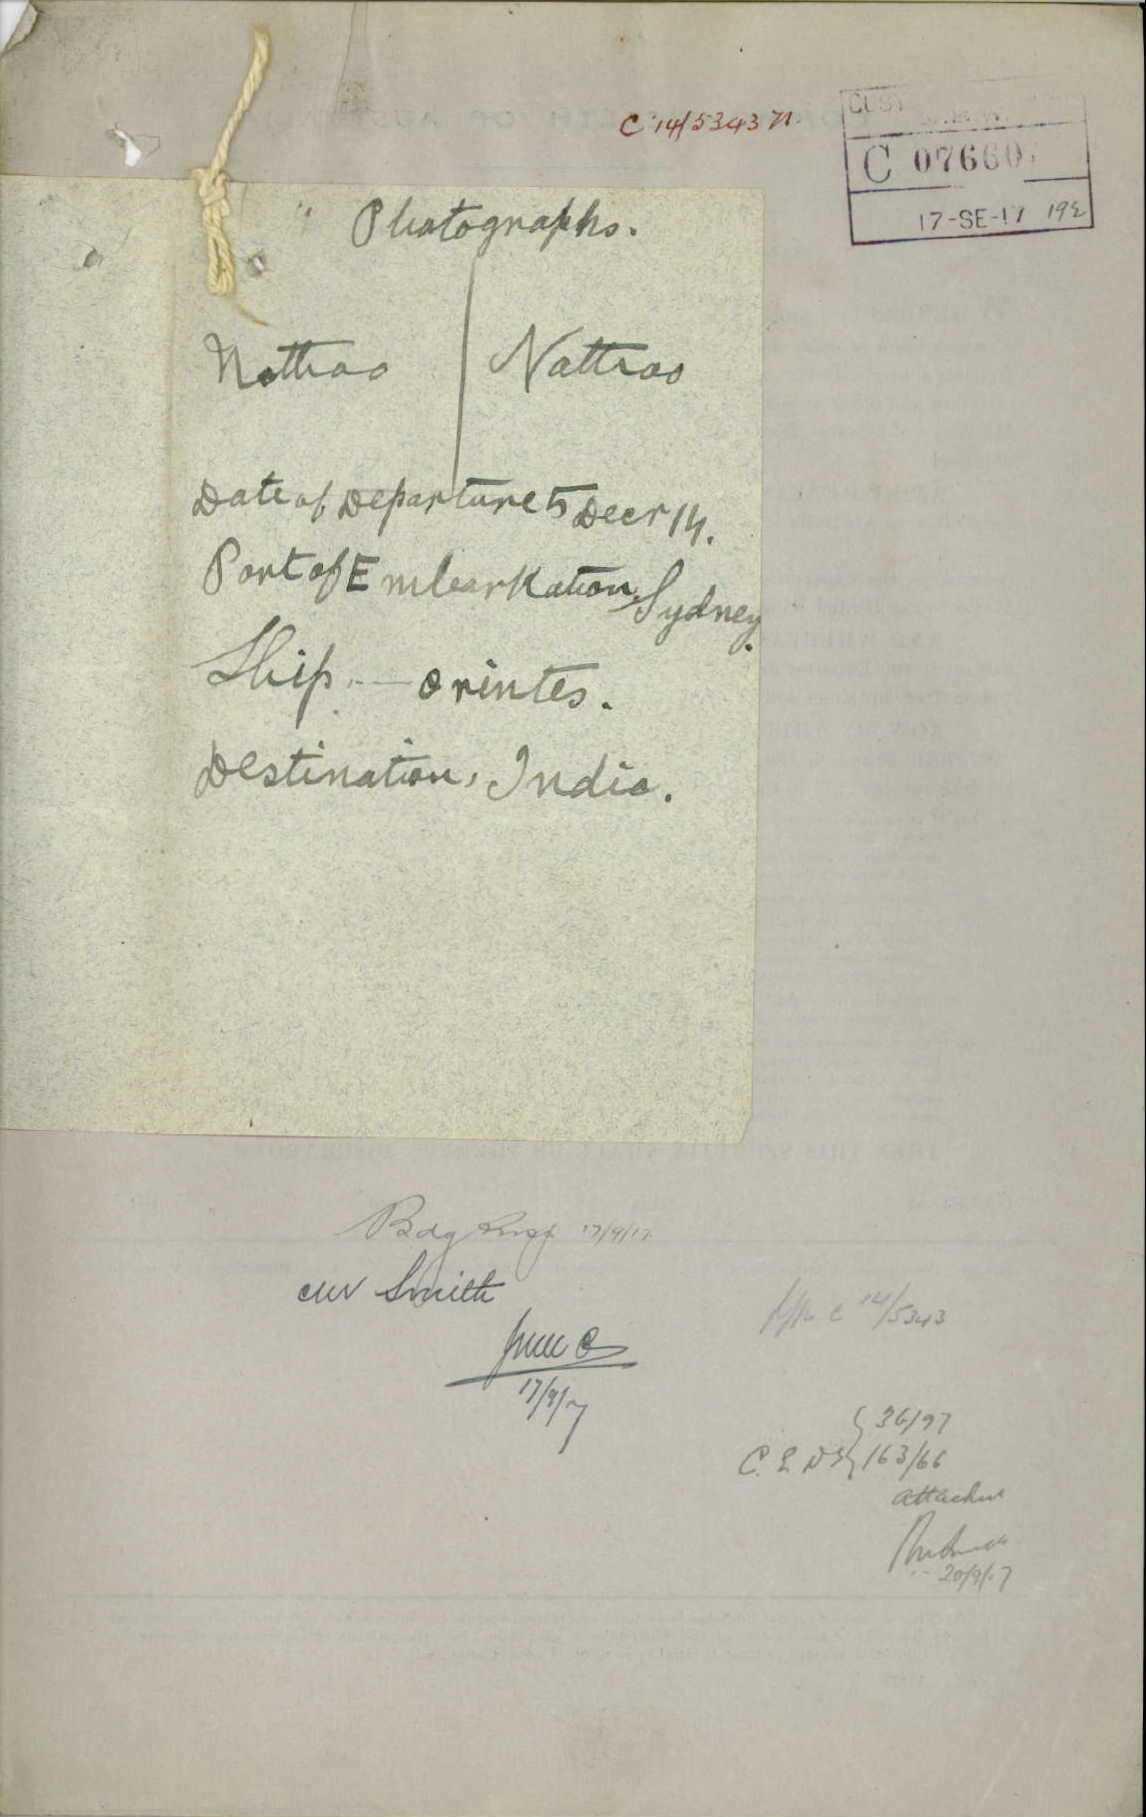 C 14/5343 N
C 07660
17-SE-17 192
Photographs.
Nattrao | Nattrao
Date of Departure 5 Decr 14.
Port of Embarkation, Sydney.
Ship — orintes.
Destination, India.
Bdg Insp 17/9/17
Smith
17/9/7
C 14/5343
36/97
163/66
attached
20/9/17